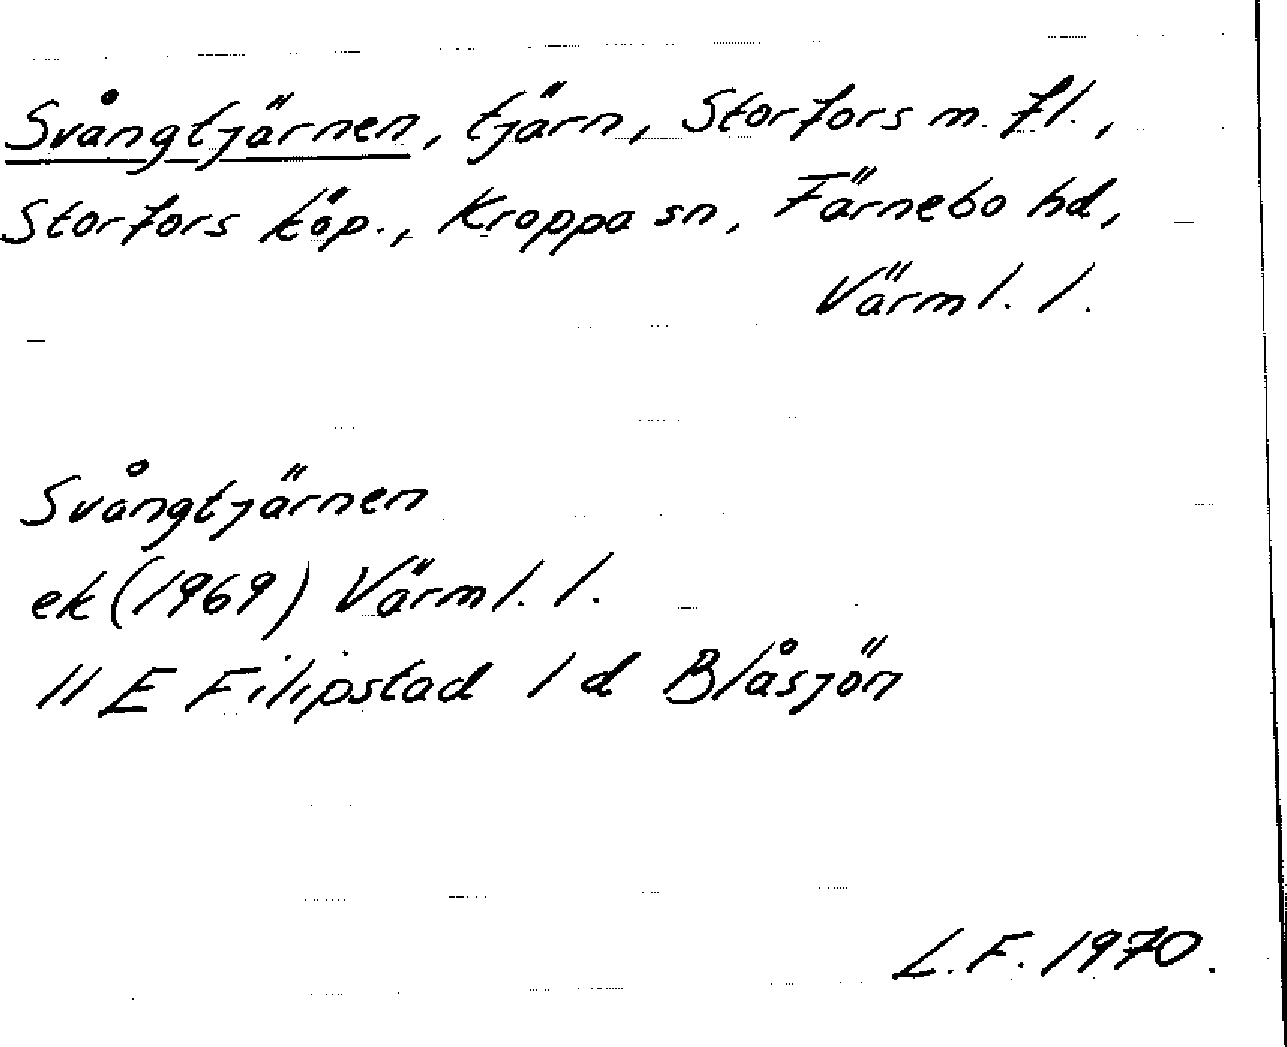 Svångtjärnen, tjärn, Storfors m. fl.,
Storfors köp., Kroppa sn, Färnebo hd,
Värml. l.
Svångtjärnen
ek (1969) Värml. l.
11 E Filipstad 1 d Blåsjön
L.F. 1970.